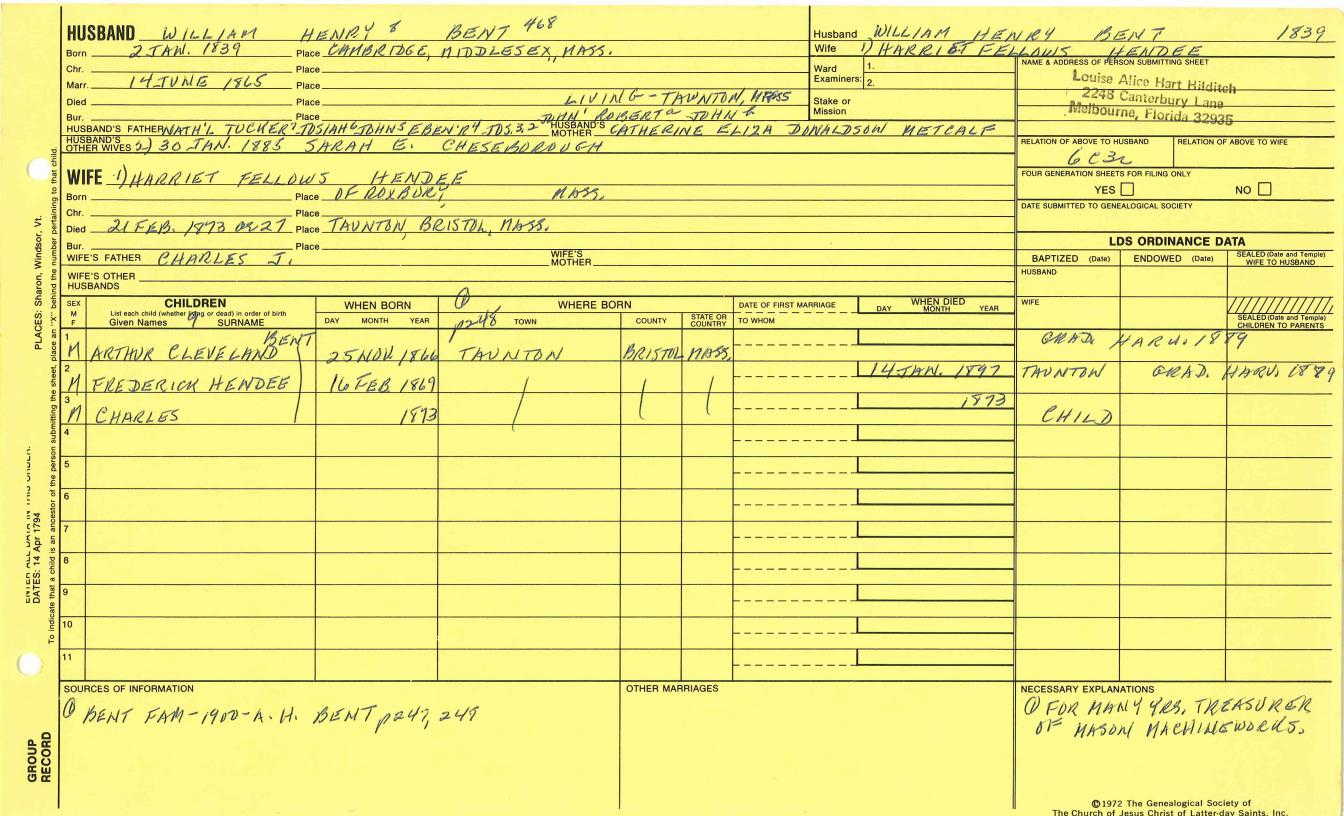 HUSBAND WILLIAM HENRY 8 BENT 468
Born 2 JAN. 1839 Place CAMBRIDGE, MIDDLESEX, MASS.
Chr. Place
Marr. 14 JUNE 1865 Place
Died Place LIVING - TAUNTON, MASS
Bur. Place JOHN' ROBERT2 JOHN 1
HUSBAND'S FATHER NATH'L TUCKER7 JOSIAH6 JOHN5 EBEN'R4 JOS.3,2 HUSBAND'S MOTHER CATHERINE ELIZA DONALDSON METCALF
HUSBAND'S OTHER WIVES 2) 30 JAN. 1885 SARAH E. CHESEBOROUGH
WIFE 1) HARRIET FELLOWS HENDEE
Born Place OF ROXBURY, MASS.
Chr. Place
Died 21 FEB. 1873 OR 27 Place TAUNTON, BRISTOL, MASS.
Bur. Place
WIFE'S FATHER CHARLES J. WIFE'S MOTHER
WIFE'S OTHER HUSBANDS
Husband WILLIAM HENRY BENT 1839
Wife 1) HARRIET FELLOWS HENDEE
Ward Examiners: 1. 2.
Stake or Mission
NAME & ADDRESS OF PERSON SUBMITTING SHEET
Louise Alice Hart Hilditch
2248 Canterbury Lane
Melbourne, Florida 32935
RELATION OF ABOVE TO HUSBAND RELATION OF ABOVE TO WIFE
6C3R
FOUR GENERATION SHEETS FOR FILING ONLY
YES NO
DATE SUBMITTED TO GENEALOGICAL SOCIETY
LDS ORDINANCE DATA
BAPTIZED (Date) ENDOWED (Date) SEALED (Date and Temple) WIFE TO HUSBAND
HUSBAND
WIFE
SEALED (Date and Temple) CHILDREN TO PARENTS
SEX M F CHILDREN WHEN BORN ① WHERE BORN DATE OF FIRST MARRIAGE WHEN DIED
List each child (whether living or dead) in order of birth
Given Names 9 SURNAME DAY MONTH YEAR p248 TOWN COUNTY STATE OR COUNTRY TO WHOM DAY MONTH YEAR
1 M ARTHUR CLEVELAND BENT 25 NOV 1866 TAUNTON BRISTOL MASS. GRAD. HARV. 1889
2 M FREDERICK HENDEE 16 FEB 1869 14 JAN. 1897 TAUNTON GRAD. HARV. 1889
3 M CHARLES 1873 1873 CHILD
4
5
6
7
8
9
10
11
SOURCES OF INFORMATION
① BENT FAM-1900-A. H. BENT p247, 249
OTHER MARRIAGES
NECESSARY EXPLANATIONS
① FOR MANY YRS, TREASURER
OF MASON MACHINEWORKS.
©1972 The Genealogical Society of
The Church of Jesus Christ of Latter-day Saints, Inc.
GROUP RECORD
DATES: 14 Apr 1794
PLACES: Sharon, Windsor, Vt.
To indicate that a child is an ancestor of the person submitting the sheet, place an "X" behind the number pertaining to that child.